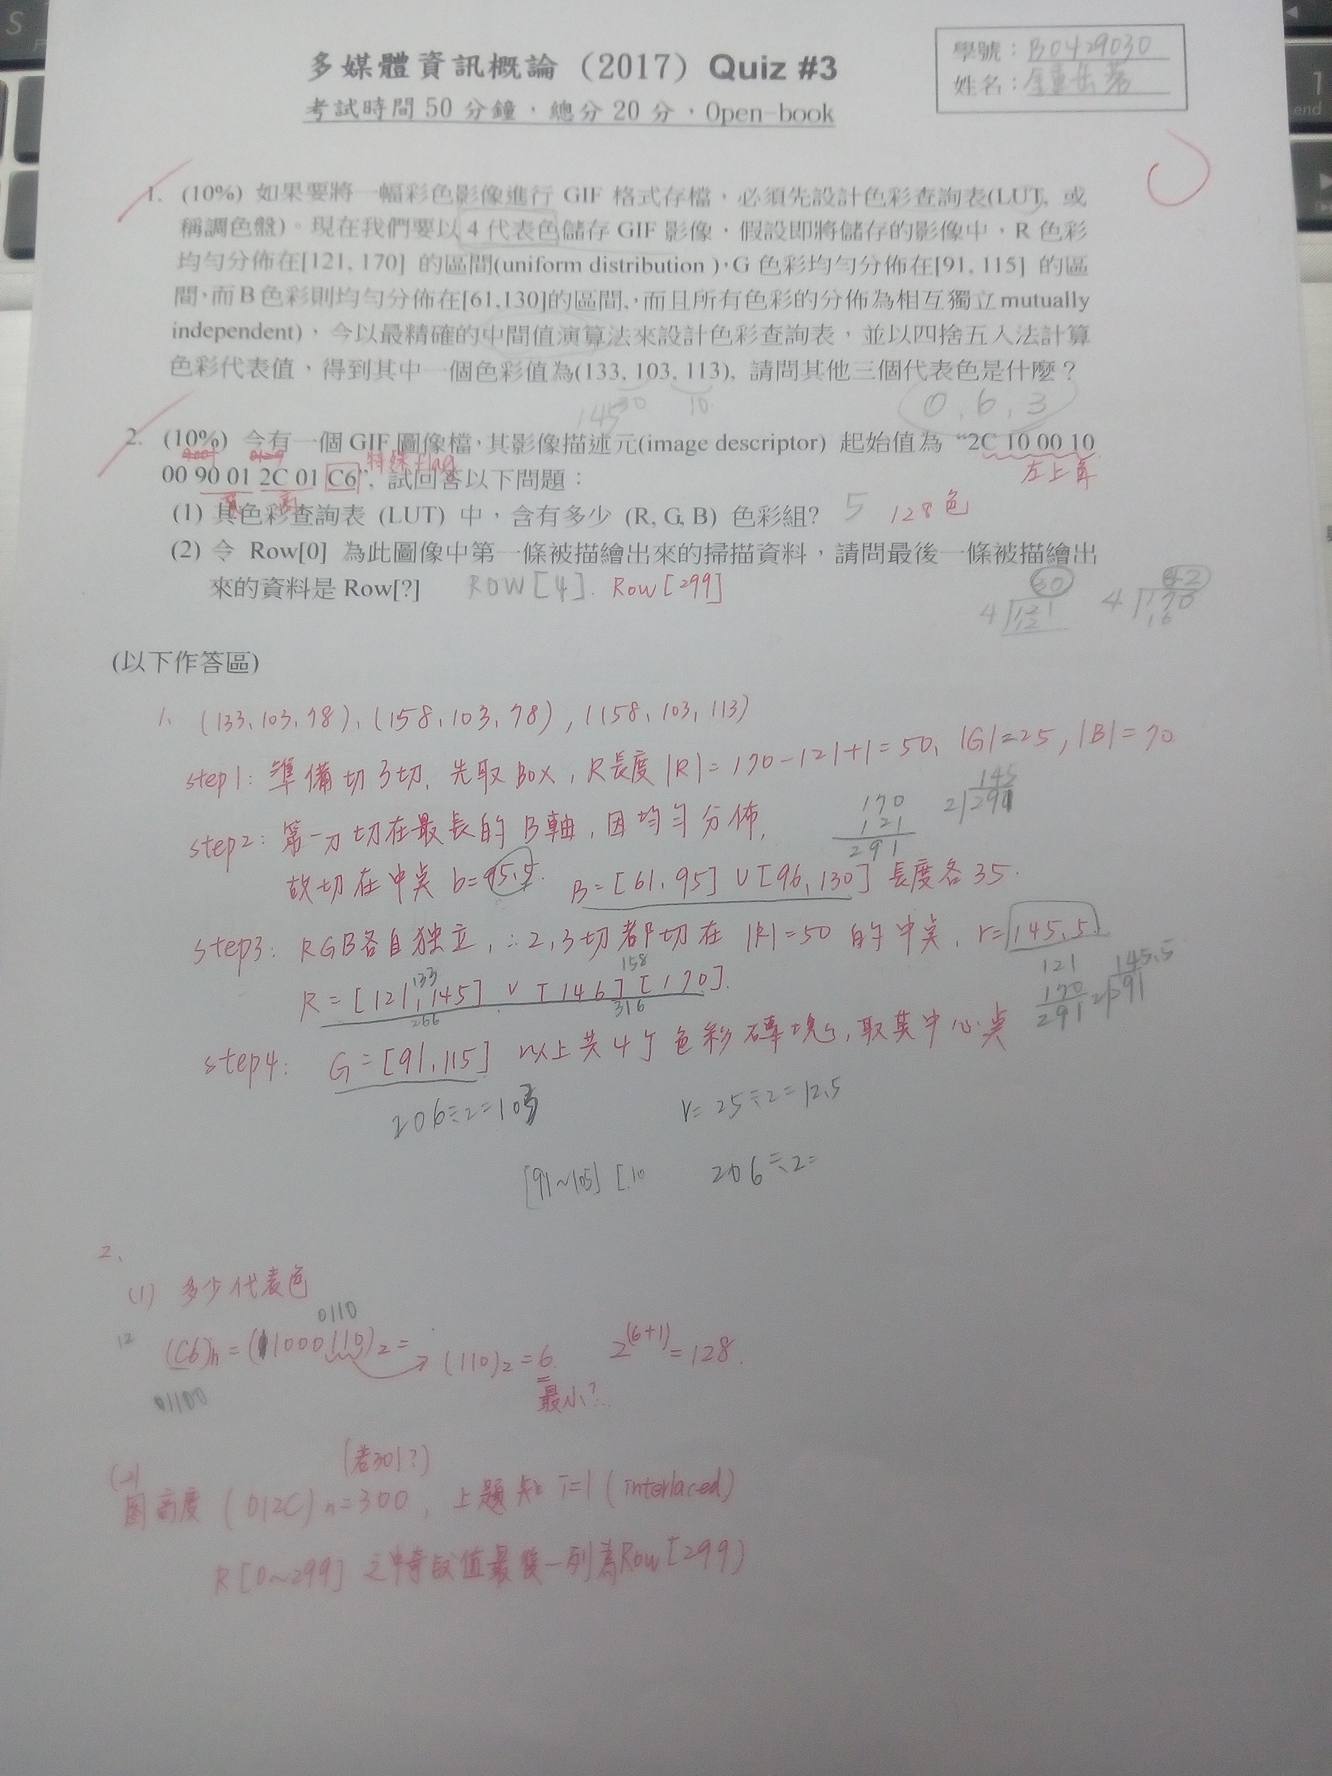 多媒體資訊概論（2017）Quiz #3
考試時間 50 分鐘，總分 20 分，Open-book
學號：B0429030
姓名：
1. (10%) 如果要將一幅彩色影像進行 GIF 格式存檔，必須先設計色彩查詢表(LUT, 或
稱調色盤)。現在我們要以 4 代表色儲存 GIF 影像，假設即將儲存的影像中，R 色彩
均勻分佈在[121, 170] 的區間(uniform distribution )，G 色彩均勻分佈在[91, 115] 的區
間，而 B 色彩則均勻分佈在[61,130]的區間,，而且所有色彩的分佈為相互獨立 mutually
independent)，今以最精確的中間值演算法來設計色彩查詢表，並以四捨五入法計算
色彩代表值，得到其中一個色彩值為(133, 103, 113), 請問其他三個代表色是什麼？
145 30 10
0, 6, 3
2. (10%) 今有一個 GIF 圖像檔，其影像描述元(image descriptor) 起始值為 “2C 10 00 10
特殊 flag
左上角
00 90 01 2C 01 C6”, 試回答以下問題：
寬 高
(1) 其色彩查詢表 (LUT) 中，含有多少 (R, G, B) 色彩組? 5 128色
(2) 令 Row[0] 為此圖像中第一條被描繪出來的掃描資料，請問最後一條被描繪出
來的資料是 Row[?] ROW[4]. Row[299]
30
4 121
12
42
4 170
16
(以下作答區)
1. (133, 103, 78), (158, 103, 78), (158, 103, 113)
step1: 準備切3切, 先取Box, R長度|R|=170-121+1=50, |G|=25, |B|=70
step2: 第一刀切在最長的B軸, 因均勻分佈,
170
121
291
145
2 291
故切在中點 b=95.5. B=[61,95] U [96,130] 長度各35.
step3: RGB各自独立, ∴2,3切都切在 |R|=50 的中点, r=145.5
133 158
R=[121,145] U [146] [170].
266 316
121
170
291
145.5
2 291
step4: G=[91,115] 以上共4个色彩磚塊, 取其中心点
206÷2=103
r= 25÷2=12.5
[91~105] [10
206÷2=
2.
(1) 多少代表色
0110
12
(C6)h = (11000110)2 = (110)2 = 6. 2^(6+1) = 128.
01100
最小?
(若301?)
(2)
圖高度 (012C)h=300, 上題知 i=1 (interlaced)
R[0~299] 之中奇數值最後一列為Row[299]